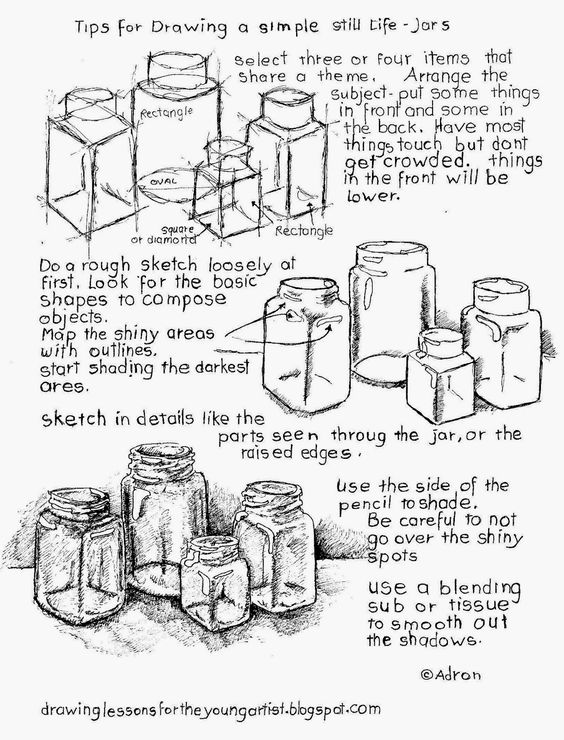 Tips for Drawing a simple still Life - Jars
select three or four items that
share a theme. Arrange the
subject - put some things
in front and some in
the back. Have most
things touch but dont
get crowded. things
in the front will be
lower.
Rectangle
OVAL
square
or diamond
Rectangle
Do a rough sketch loosely at
first. Look for the basic
shapes to compose
objects.
Map the shiny areas
with outlines.
start shading the darkest
ares.
sketch in details like the
parts seen throug the jar, or the
raised edges.
use the side of the
pencil to shade.
Be careful to not
go over the shiny
spots
use a blending
sub or tissue
to smooth out
the shadows.
©Adron
drawinglessonsfortheyoungartist.blogspot.com